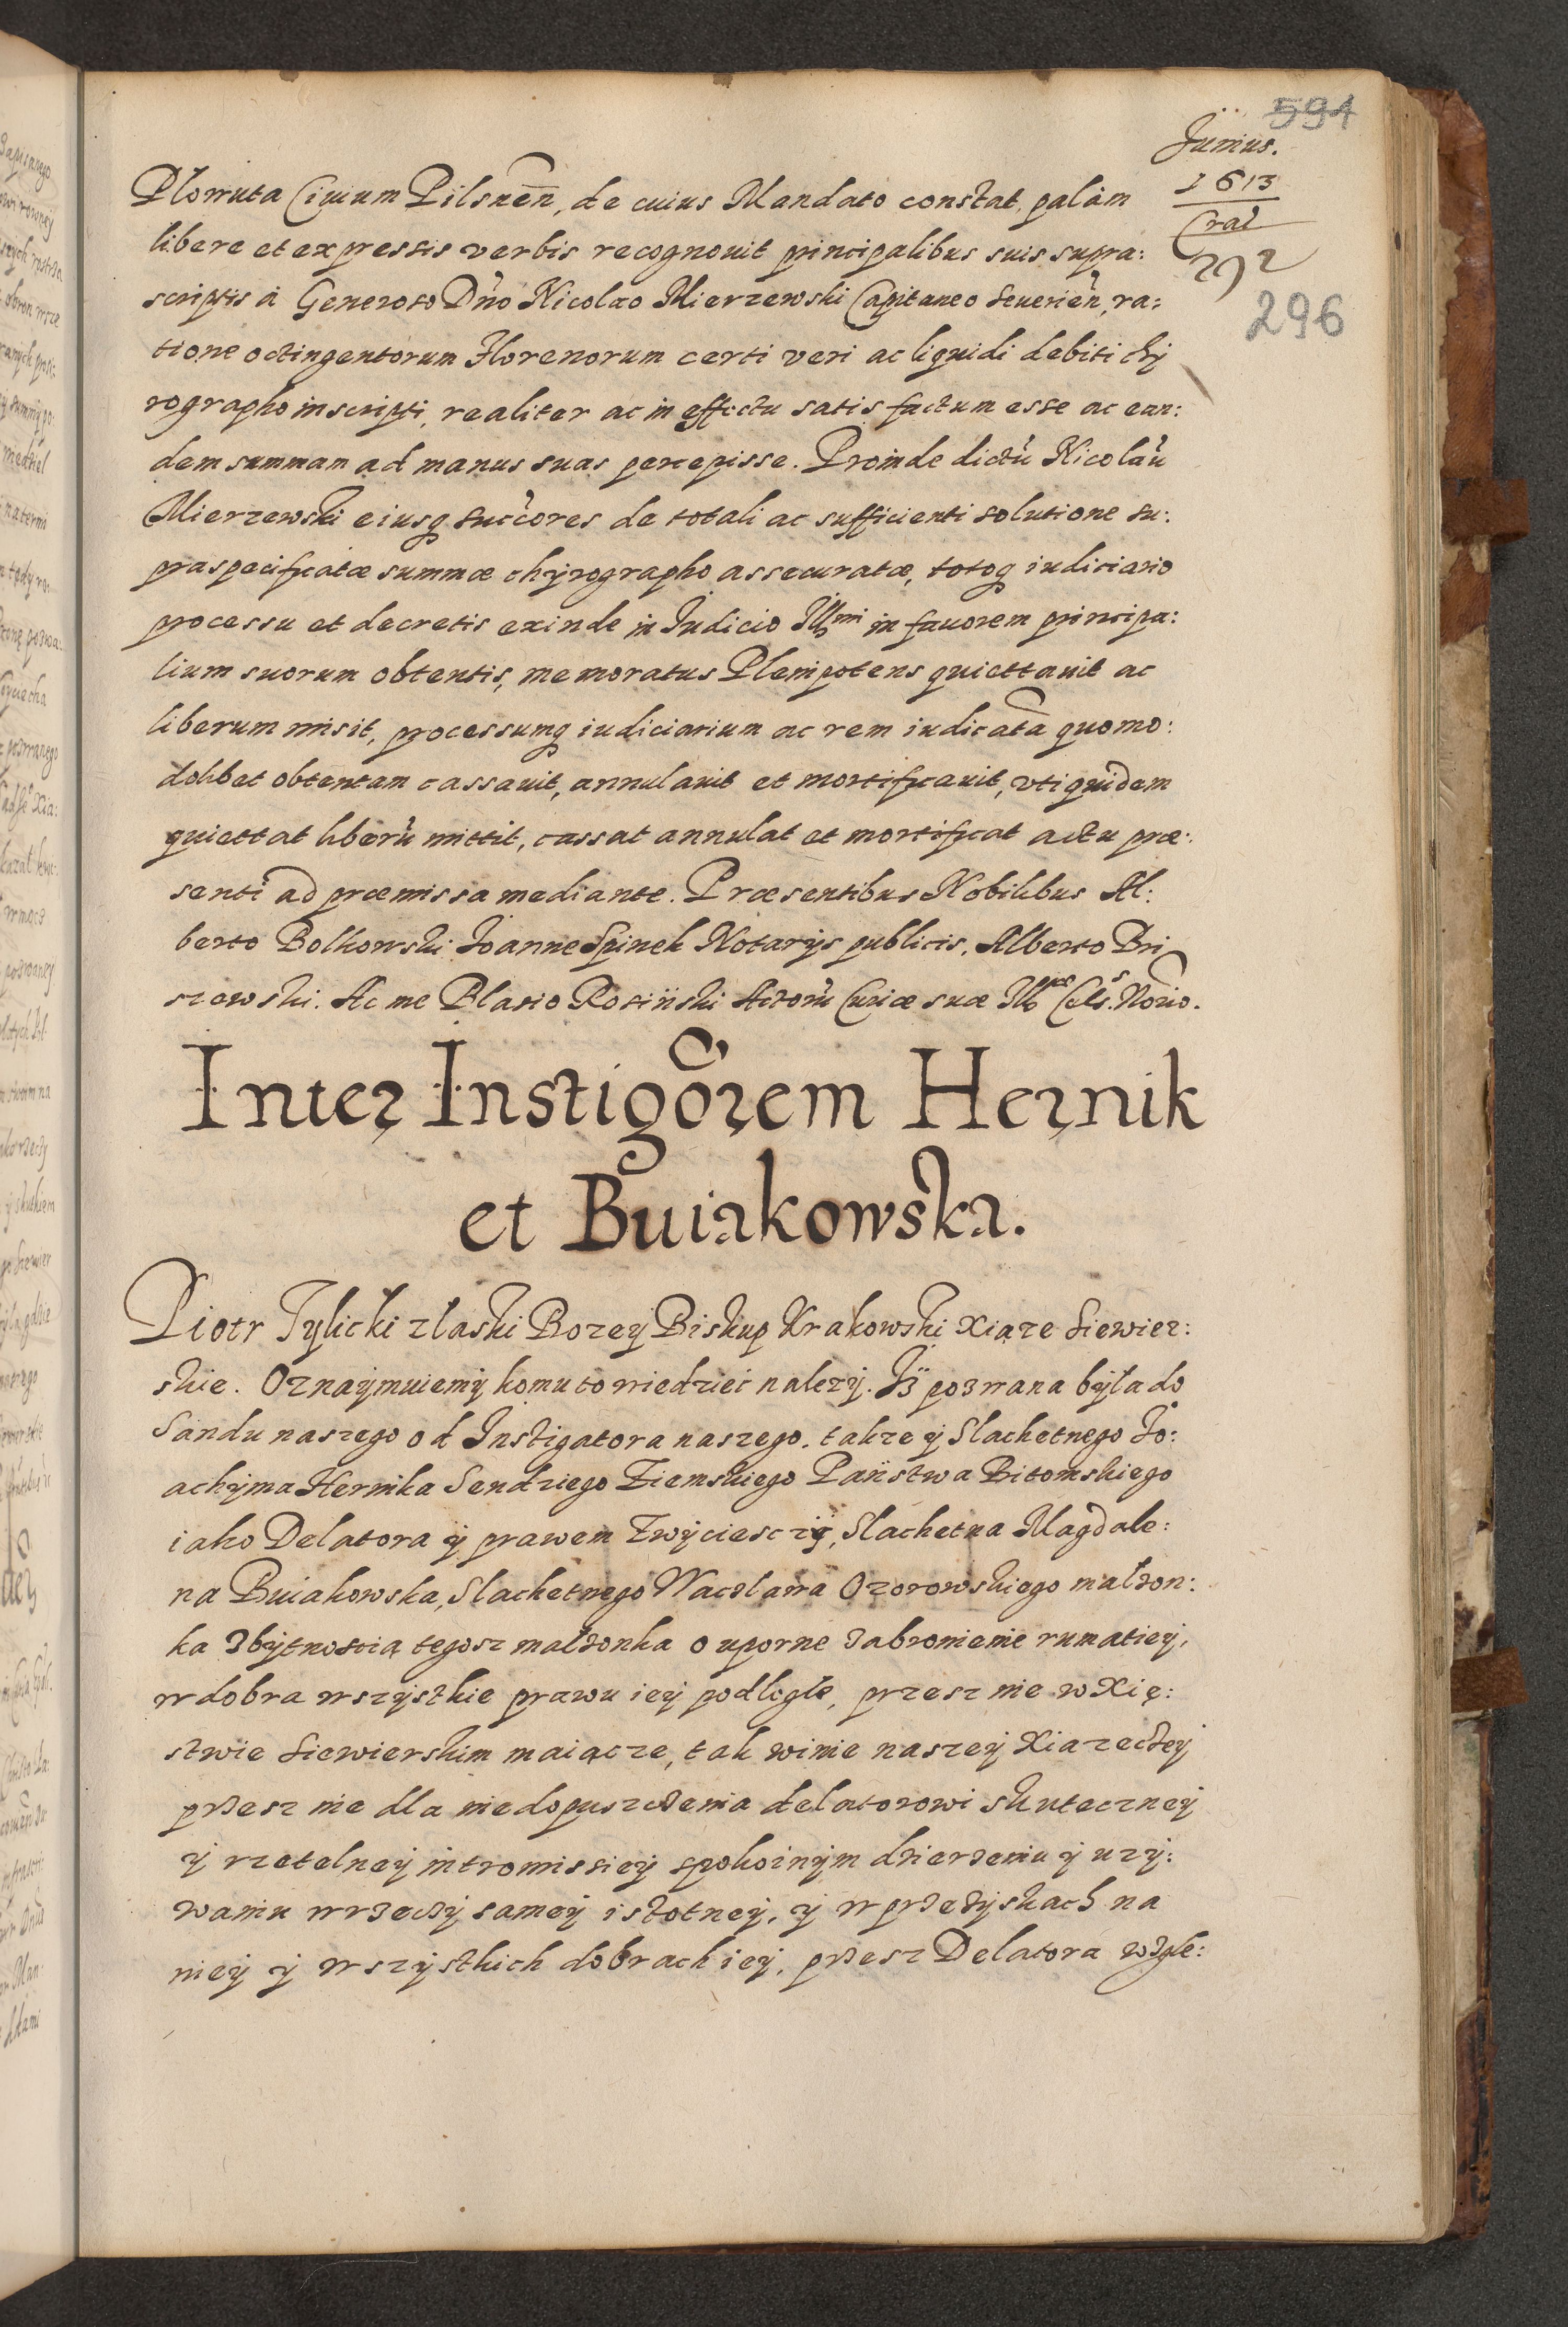 594
Junius.
1613
Crac
292
296
Plorruta Ciuium Pilsneñ, de cuius Mandato constat, palàm
libere et expressis verbis recognouit principalibus suis supra:
scriptis à Generoso Dño Nicolao Mierzewski Capitaneo Seuerieñ, ra:
tione octingentorum Florenorum certi veri ac liquidi debiti chÿ
rographo inscripti, realiter ac in effectu satisfactum esse ac ean:
dem summam ad manus suas percepisse. Proinde dictũ Nicolaũ
Mierzewski eiusq succores de totali ac sufficienti solutione su:
praspecificatæ summæ chÿrographo assecuratæ, totoq iudiciario
processu et decretis exinde in Judicio Illmi in fauorem principa:
lium suorum obtentis, memoratus Plenipotens quiettauit ac
liberum misit, processumq iudiciarium ac rem iudicatã quomo:
dolibet obtentam cassauit, annulauit et mortificauit, vti quidem
quiettat liberũ mittit, cassat annulat et mortificat actu præ:
senti ad præmissa mediante. Præsentibus Nobilibus Al:
berto Bolkowski Joanne Spinek Notarÿs publicis, Alberto Bri
szewski. Ac me Blasio Rosiński Actorũ Curiæ suæ Illmæ Cels. Norio.
Inter Instigõrem Hernik
et Buiakowska.
Piotr Tÿlicki z laski Bozeÿ Biskup Krakowski Xiąze Siewier:
skie. Oznaÿmuiemÿ komu to wiedziec nalezÿ. Jz pozwana bÿła do
Sandu naszego od Instigatora naszego. takze ÿ Slachetnego Jo:
achÿma Hernika Sendziego Ziemskiego Państwa Bitomskiego
iako Delatora ÿ prawem zwÿciesczÿ, Slachetna Magdale:
na Buiakowska, Slachetnego Wacława Ozorowskiego małzon:
ka z bÿtnoscią tegosz małzonka o uporne zabronienie rumatieÿ,
w dobra wszÿstkie prawu ieÿ podległe, przesz nie w Xię:
stwie Siewierskim maiącze, tak winie naszeÿ Xiazeczeÿ
przesz nie dla niedopuszczenia delatorowi skuteczneÿ
ÿ rzetelneÿ intromissieÿ spokoinÿm dzierzeniu ÿ uzÿ:
waniu w rzeczÿ sameÿ istotneÿ, ÿ w przezÿskach na
nieÿ ÿ wszÿstkich dobrach ieÿ, przesz Delatora wzgle: